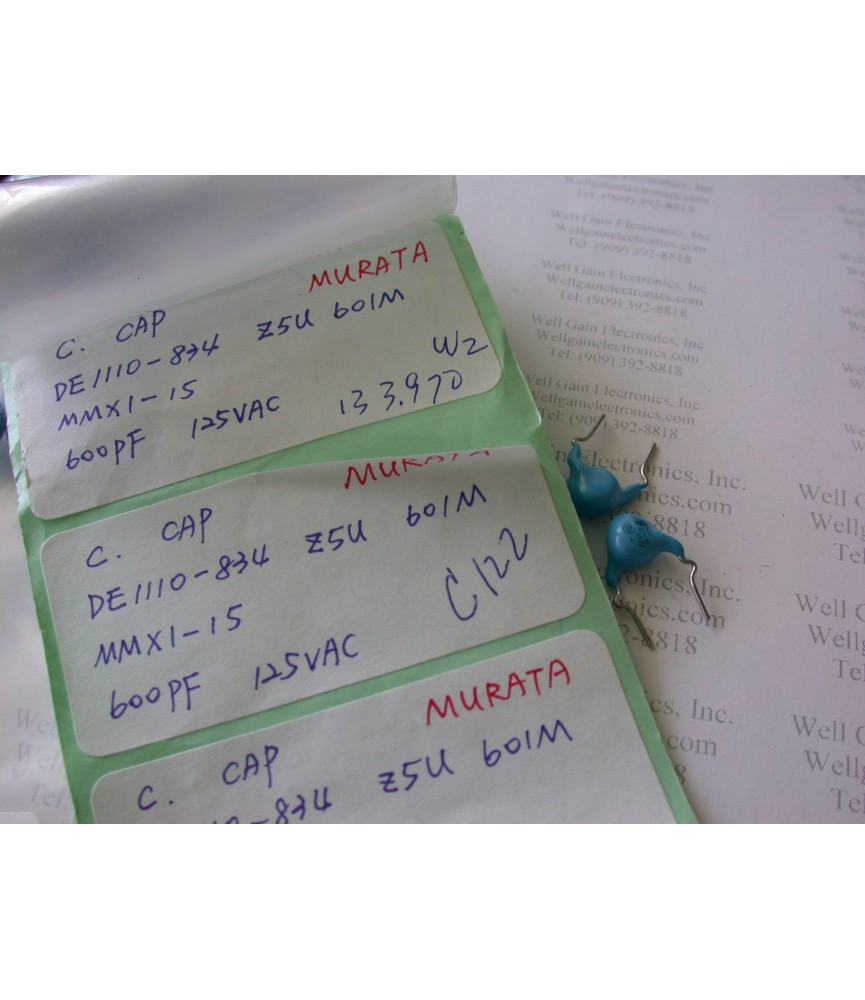 MURATA
C. CAP
DE1110-834 Z5U 601M
MMX1-15 W2
600PF 125VAC 133.970
MURATA
C. CAP
DE1110-834 Z5U 601M
MMX1-15 C122
600PF 125VAC
MURATA
C. CAP
10-834 Z5U 601M
Well Gain Electronics, Inc.
Wellgainelectronics.com
Tel: (909) 392-8818
Well Gain Electronics, Inc.
Wellgainelectronics.com
Tel: (909) 392-8818
Well Gain Electronics, Inc.
Wellgainelectronics.com
Tel: (909) 392-8818
Well Gain Electronics, Inc.
Wellgainelectronics.com
Tel: (909) 392-8818
in Electronics, Inc.
nics.com
8818
onics, Inc.
nics.com
2-8818
cs, Inc.
com
8
Well G
Wellg
Tel
Well G
Wellg
Tel
Well G
Wellg
Tel